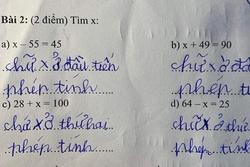 Bài 2: (2 điểm) Tìm x:
a) x – 55 = 45
b) x + 49 = 90
chữ x ở đầu tiên
chữ x ở đầ
phép tính
phép t
c) 28 + x = 100
d) 64 – x = 25
chữ x ở thứ hai
chữ x ở thứ
phép tính
phép tính